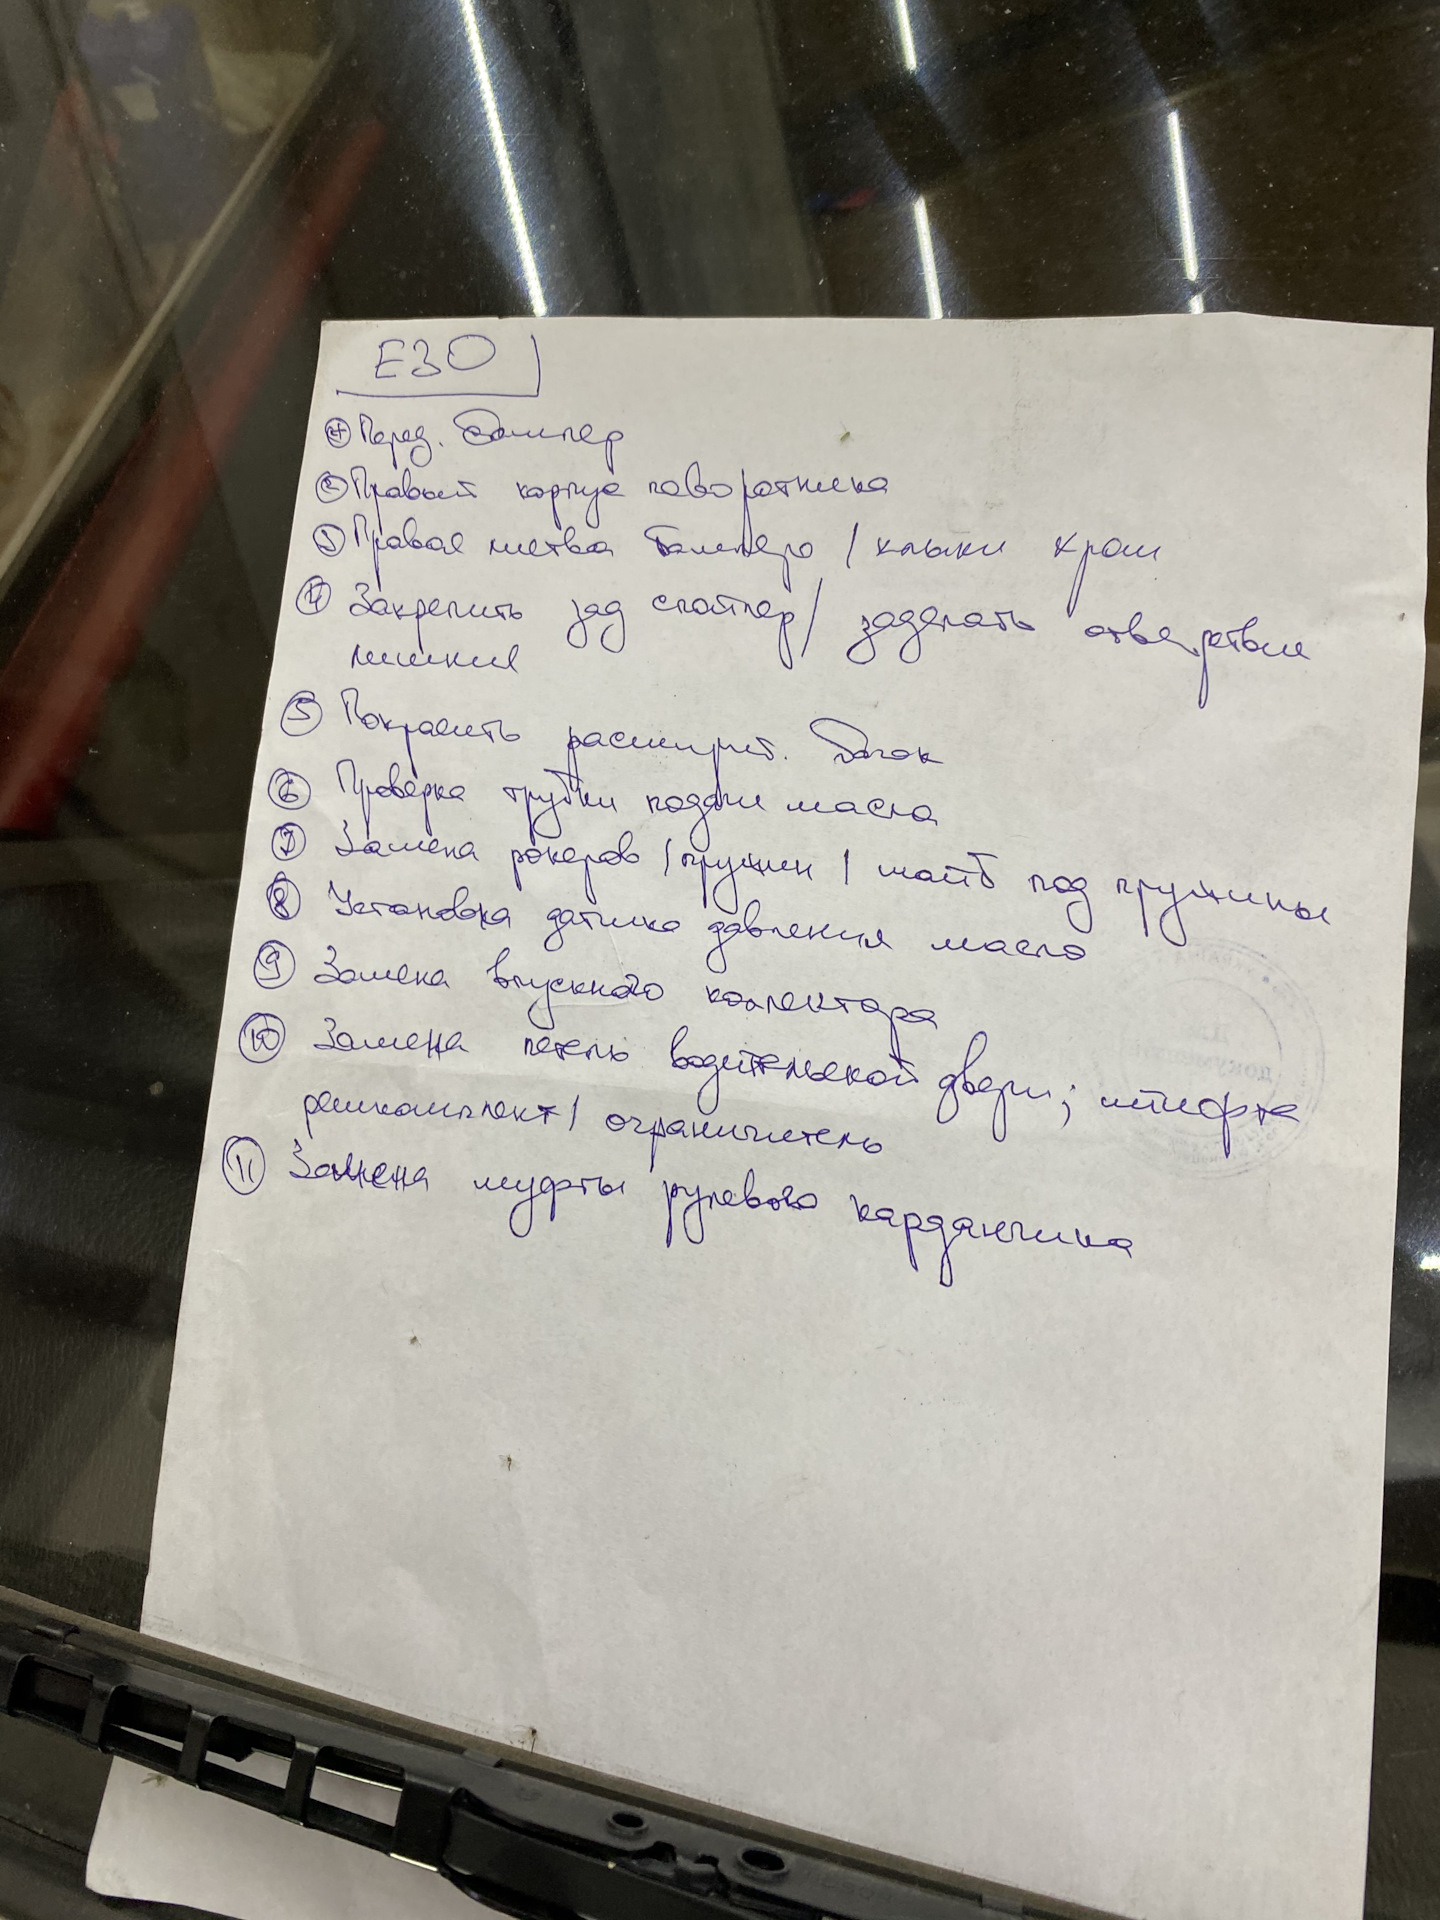 E30
1 Перед. бампер
2 Правый корпус поворотника
3 Правая метва бампера / клыки хром
4 Закрепить зад спойлер / заделать отверстие
лишния
5 Покрасить расширит. бачок
6 Проверка трубки подачи масла
7 Замена рокеров / пружин / шайб под пружины
8 Установка датчика давления масла
9 Замена впускного коллектора
10 Замена петель водительской двери; штифта
ремкомплект / ограничитель
11 Замена муфты рулевого карданчика